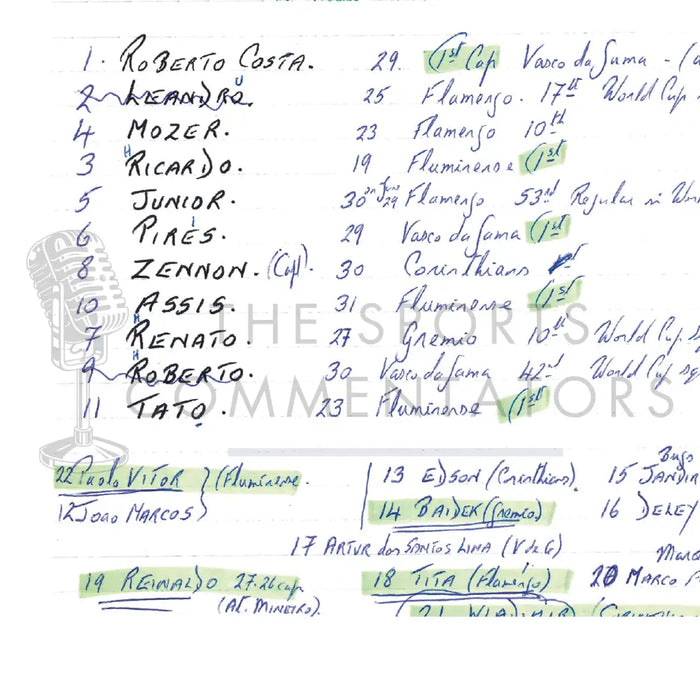 1. ROBERTO COSTA. 29. (1st Cap Vasco da Gama - (
2 LEANDRO. 25 Flamengo. 17th World Cup
4 MOZER. 23 Flamengo 10th
3 RICARDO. 19 Fluminense (1st
5 JUNIOR. 30 on June 29 Flamengo 53rd Regular in Wor
6 PIRES. 29 Vasco da Gama (1st
8 ZENNON. (Capt). 30 Corinthians
10 ASSIS. 31 Fluminense (1st
7 RENATO. 27 Gremio 10th World Cup s
9 ROBERTO. 30 Vasco da Gama 42nd World Cup sq
11 TATO. 23 Fluminense (1st
THE SPORTS
COMMENTATORS
22 Paolo VITOR } (Fluminense.
12 JOAO MARCOS
13 EDSON (Corinthians).
14 BAIDEK (Gremio)
15 JANDIR
16 DELEY
17 ARTUR dos SANTOS LIMA (V de G)
19 REINALDO 27. 26 cap
(AT. MINEIRO).
18 TITA (Flamengo)
20 MARCO
21 WLADIMIR (Corinthian